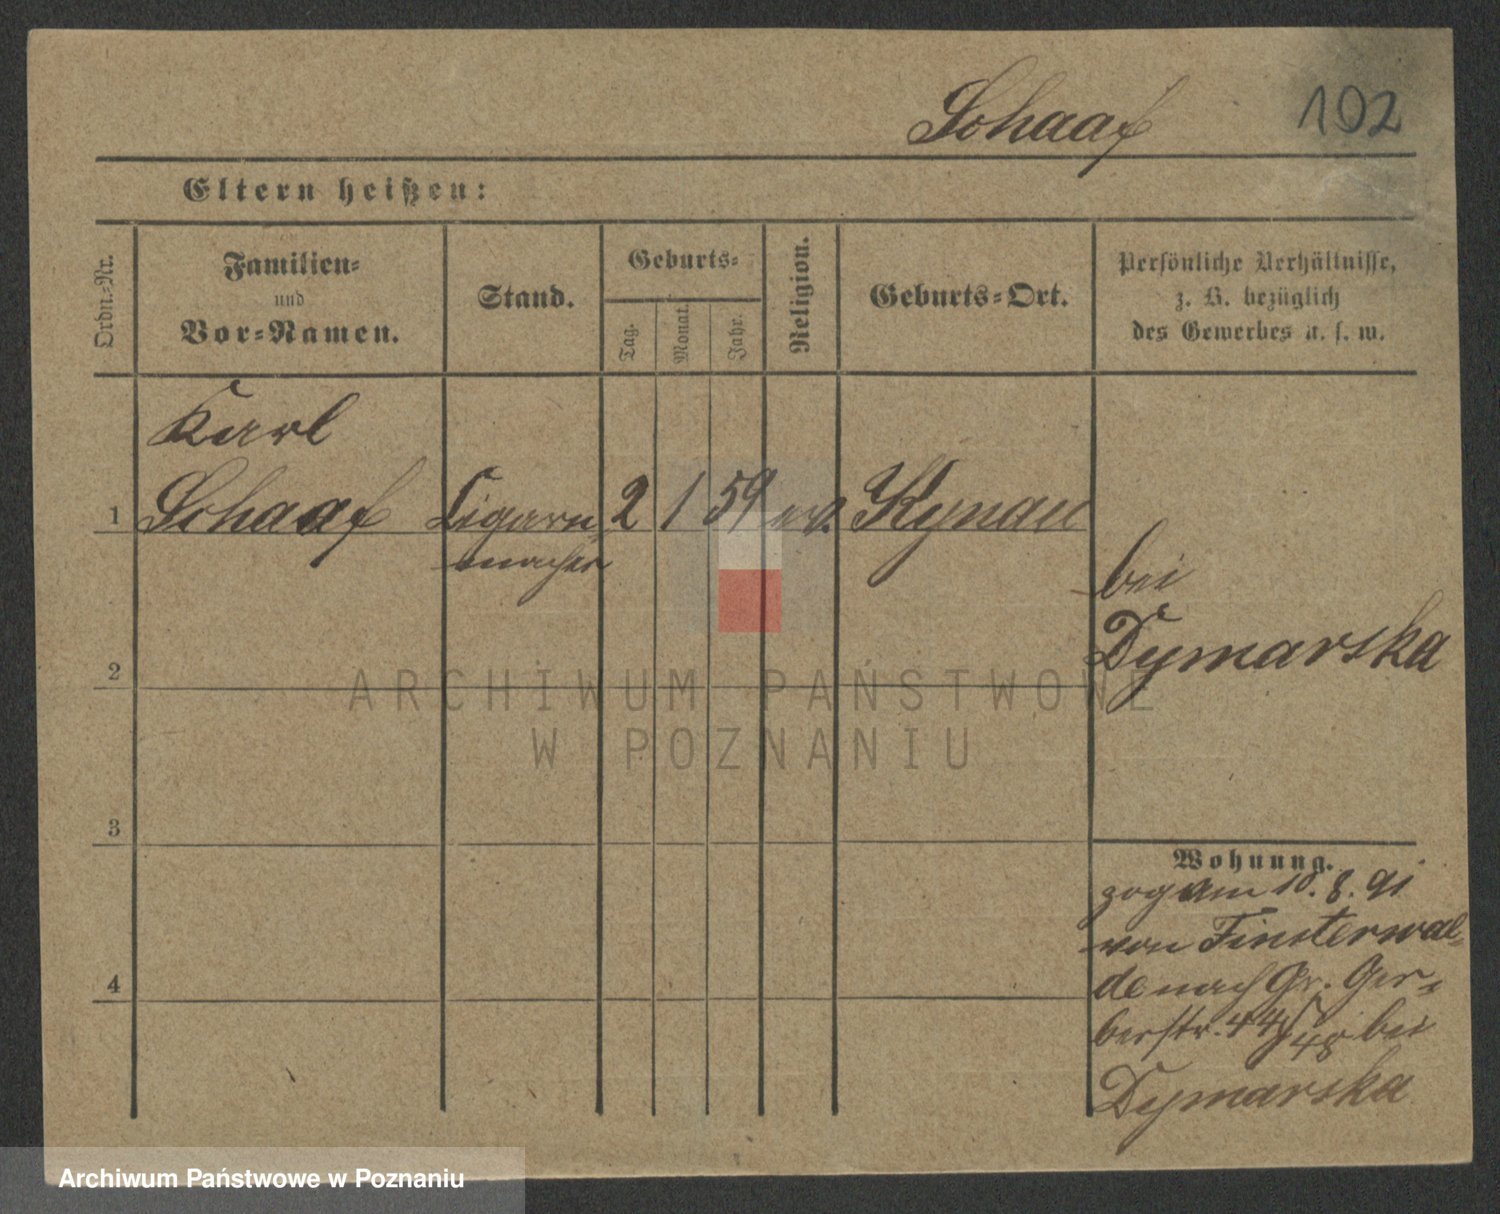 Schaaf 102
Eltern heißen:
Ordn.-Nr.
Familien-
und
Vor-Namen.
Stand.
Geburts-
Tag.
Monat.
Jahr.
Religion.
Geburts-Ort.
Persönliche Verhältnisse,
z. B. bezüglich
des Gewerbes u. s. w.
Karl
1 Schaaf Cigarn 2 1 59 ev. Kynau
macher
bei
Dymarska
2
3
4
Wohnung.
zog am 10. 8. 91
von Finsterwal-
de nach Gr. Ger-
berstr. 44/48 bei
Dymarska
ARCHIWUM PAŃSTWOWE
W POZNANIU
Archiwum Państwowe w Poznaniu